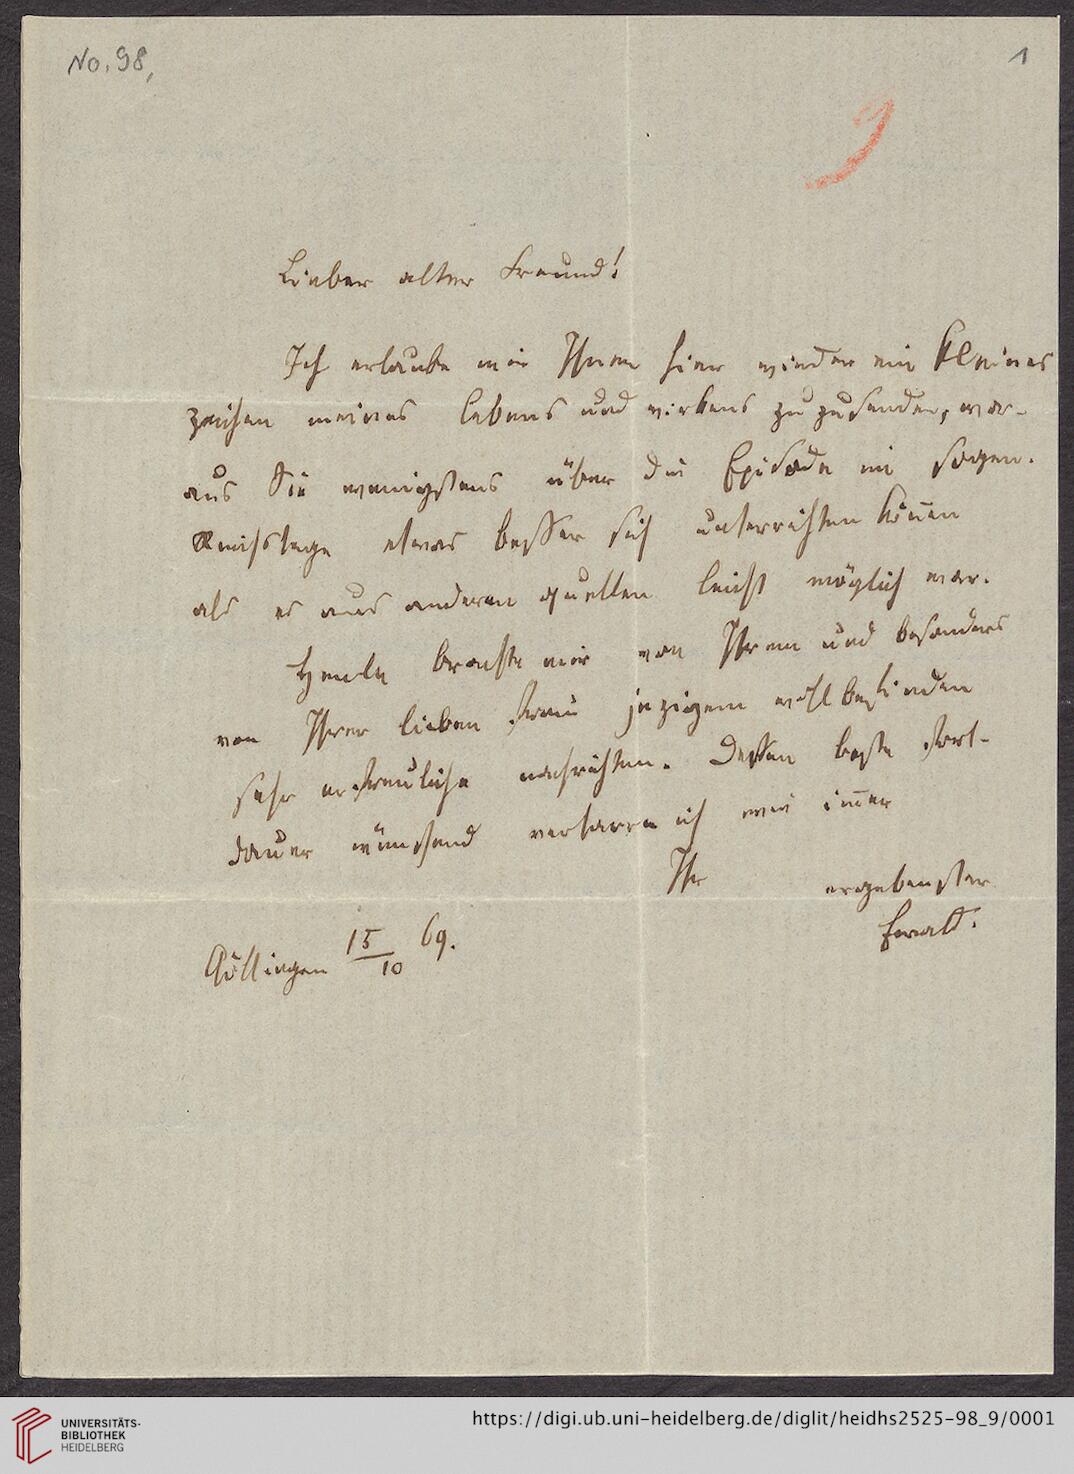 No. 98,
1
Lieber alter Freund!
Ich erlaube mir Ihnen hier wieder ein kleines
zeichen meines lebens und wirkens zu zusenden, wor-
aus Sie wenigstens über die Episode im sogen.
Reichstage etwas besser sich unterrichten können
als es aus anderen quellen leicht möglich war.
Henle brachte mir von Ihrem und besonders
von Ihrer lieben Frau jezigem wohlbefinden
sehr erfreuliche nachrichten. Dessen beste fort-
dauer wünschend verharre ich wie immer
Ihr ergebenster
Ewald.
Göttingen 15/10 69.
UNIVERSITÄTS-
BIBLIOTHEK
HEIDELBERG
https://digi.ub.uni-heidelberg.de/diglit/heidhs2525-98_9/0001